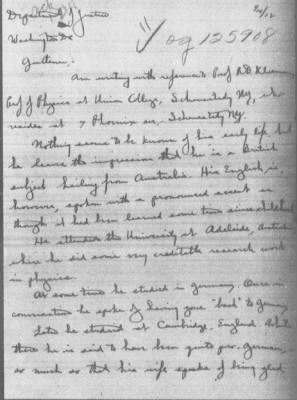 Department of Justice
Washington DC
2/12
og 125908
Gentlemen:
Am writing with reference to Prof R.D. Kleeman
Prof of Physics at Union College, Schenectady NY, who
resides at 7 Phoenix ave. Schenectady NY.
Nothing seems to be known of his early life but
he leaves the impression that he is a British
subject hailing from Australia. His English is,
however, spoken with a pronounced accent as
though it had been learned some time since childhood
He attended the University at Adelaide, Australia
where he did some very creditable research work
in physics.
At some time he studied in Germany. Once in
conversation he spoke of having gone "back" to Germany
Later he studied at Cambridge, England. While
there he is said to have been quite pro-German,
so much so that his wife speaks of being glad